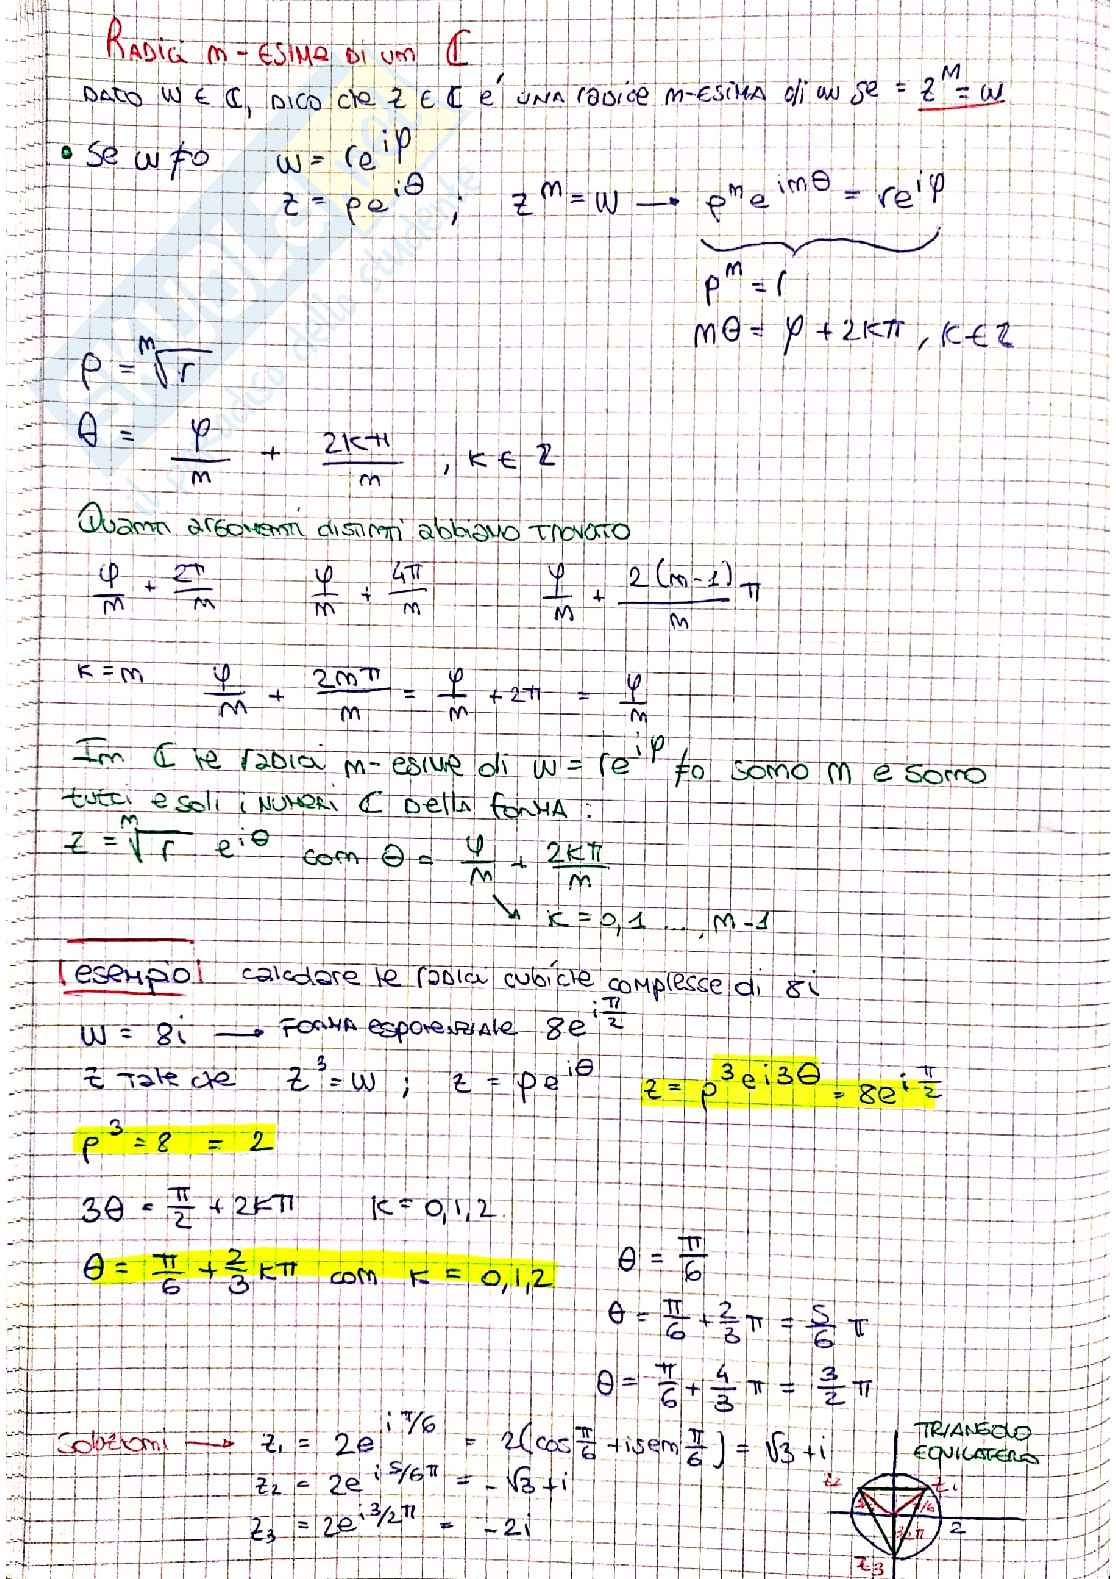 RADICI m-ESIME DI UM ℂ
DATO W ∈ ℂ, DICO che z ∈ ℂ é UNA radice m-ESIMA di w se = z^m = w
• Se w ≠ 0 w = re^{iφ}
z = ρe^{iθ} ; z^m = w → ρ^m e^{imθ} = re^{iφ}
ρ^m = r
mθ = φ + 2kπ, k ∈ Z
ρ = ᵐ√r
θ = φ/m + 2kπ/m , k ∈ Z
Quanti argomenti distinti abbiamo TROVATO
φ/m + 2π/m φ/m + 4π/m φ/m + 2(m-1)/m π
k = m φ/m + 2mπ/m = φ/m + 2π = φ/m
Im ℂ le radici m-esime di w = re^{iφ} ≠ 0 somo m e somo
tutti e soli i NUMERI ℂ Della forma:
z = ᵐ√r e^{iθ} com θ = φ/m + 2kπ/m
↘ k = 0,1 ..., m-1
esempio calcolare le radici cubiche complesse di 8i
w = 8i → FORMA esponenziale 8e^{iπ/2}
z Tale che z³ = w ; z = ρe^{iθ} z = ρ³ei3θ = 8e^{iπ/2}
ρ³ = 8 = 2
3θ = π/2 + 2kπ k = 0,1,2.
θ = π/6 + 2/3 kπ com k = 0,1,2
θ = π/6
θ = π/6 + 2/3 π = 5/6 π
θ = π/6 + 4/3 π = 3/2 π
Soluzioni → z₁ = 2e^{iπ/6} = 2(cos π/6 + i sem π/6) = √3 + i
z₂ = 2e^{i5/6π} = -√3 + i
z₃ = 2e^{i3/2π} = -2i
TRIANGOLO
EQUILATERO
z₁
2
z₃